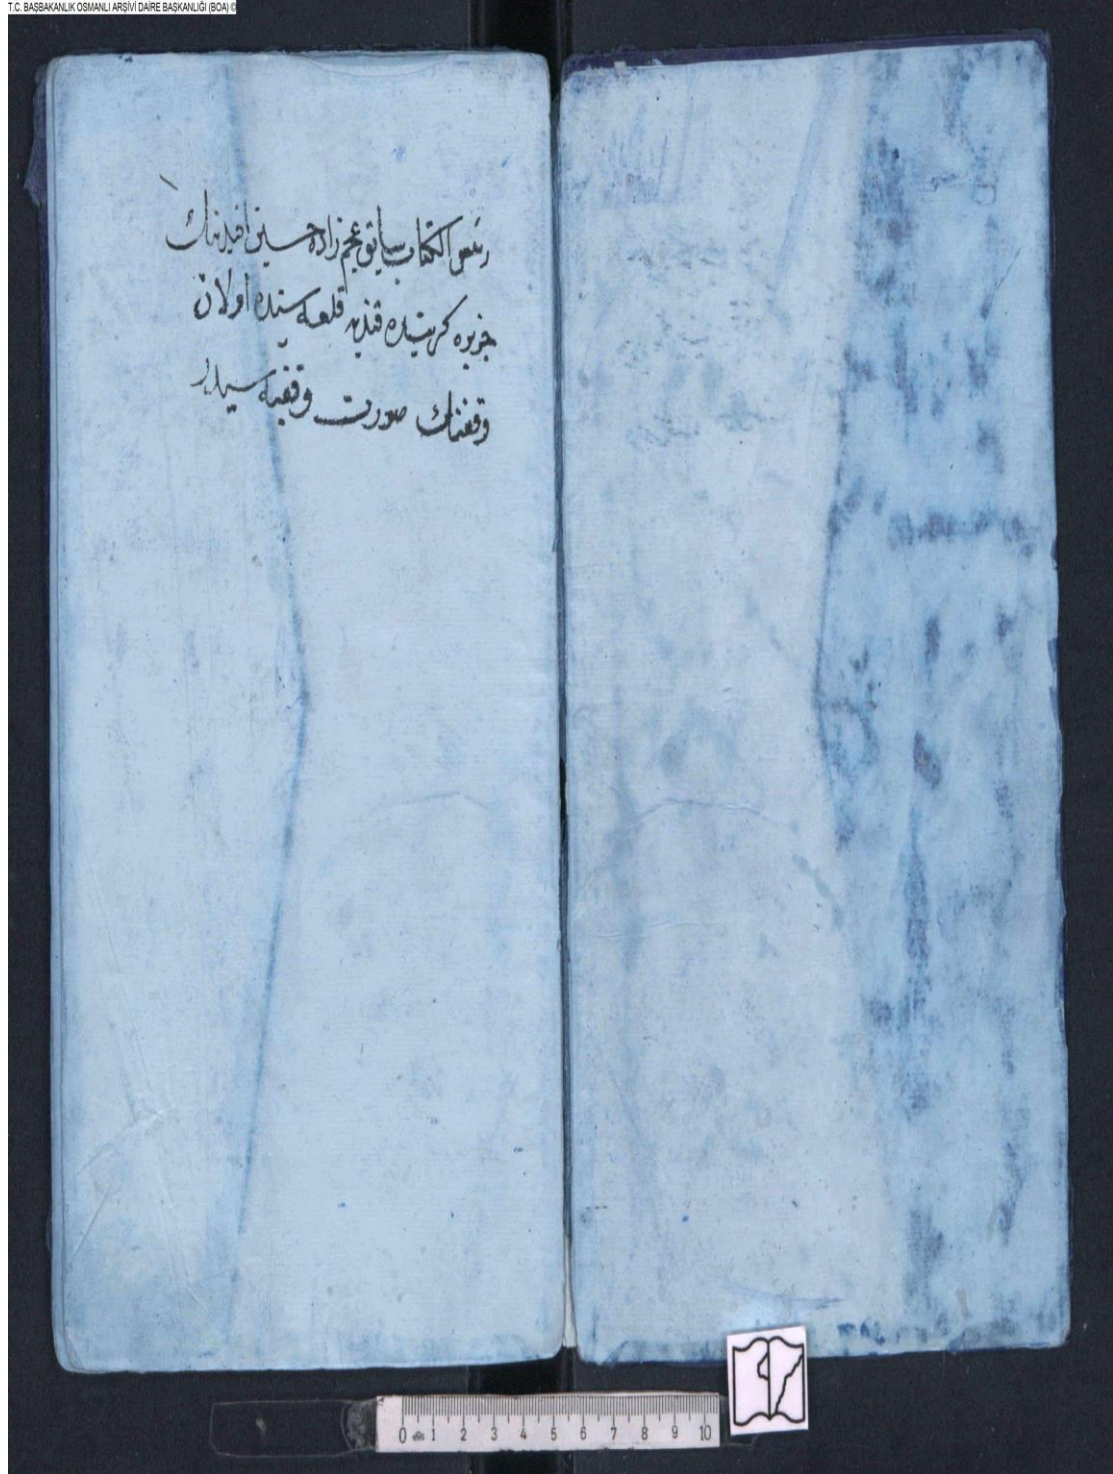 T.C. BAŞBAKANLIK OSMANLI ARŞİVİ DAİRE BAŞKANLIĞI (BOA) ©
رئيس الكتاب سابق عجم زاده حسين افندينك
جزيره كريتده قنديه قلعه سنده اولان
وقفنك صورت وقفيه سيدر
0 1 2 3 4 5 6 7 8 9 10